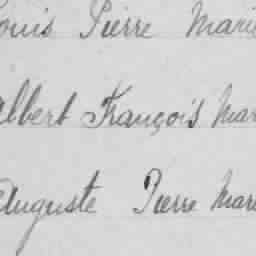 ouis Pierre Marie
Albert François Mar
Auguste Pierre Mari